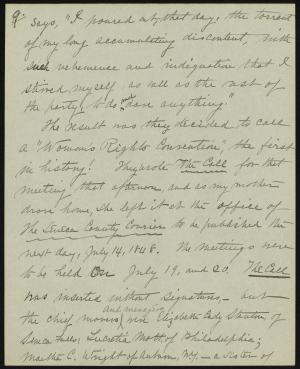 says, "I poured out, that day, the torrent
of my long accumulating discontent, with
such vehemence and indignation that I
stirred myself as well as the rest of
the party to do and dare anything."
The result was they decided to call
a "Woman's Rights Convention", the first
in history! They wrote "The Call" for that
meeting that afternoon, and as my mother
drove home, she left it at the office of
The Seneca County Courier to be published the
next day, July 14, 1848. The meetings were
to be held on July 19, and 20. The Call
was inserted without signatures, – but
the chief movers and managers were Elizabeth Cady Stanton, of
Seneca Falls; Lucretia Mott, of Philadelphia;
Martha C. Wright of Auburn, N.Y. – a sister of